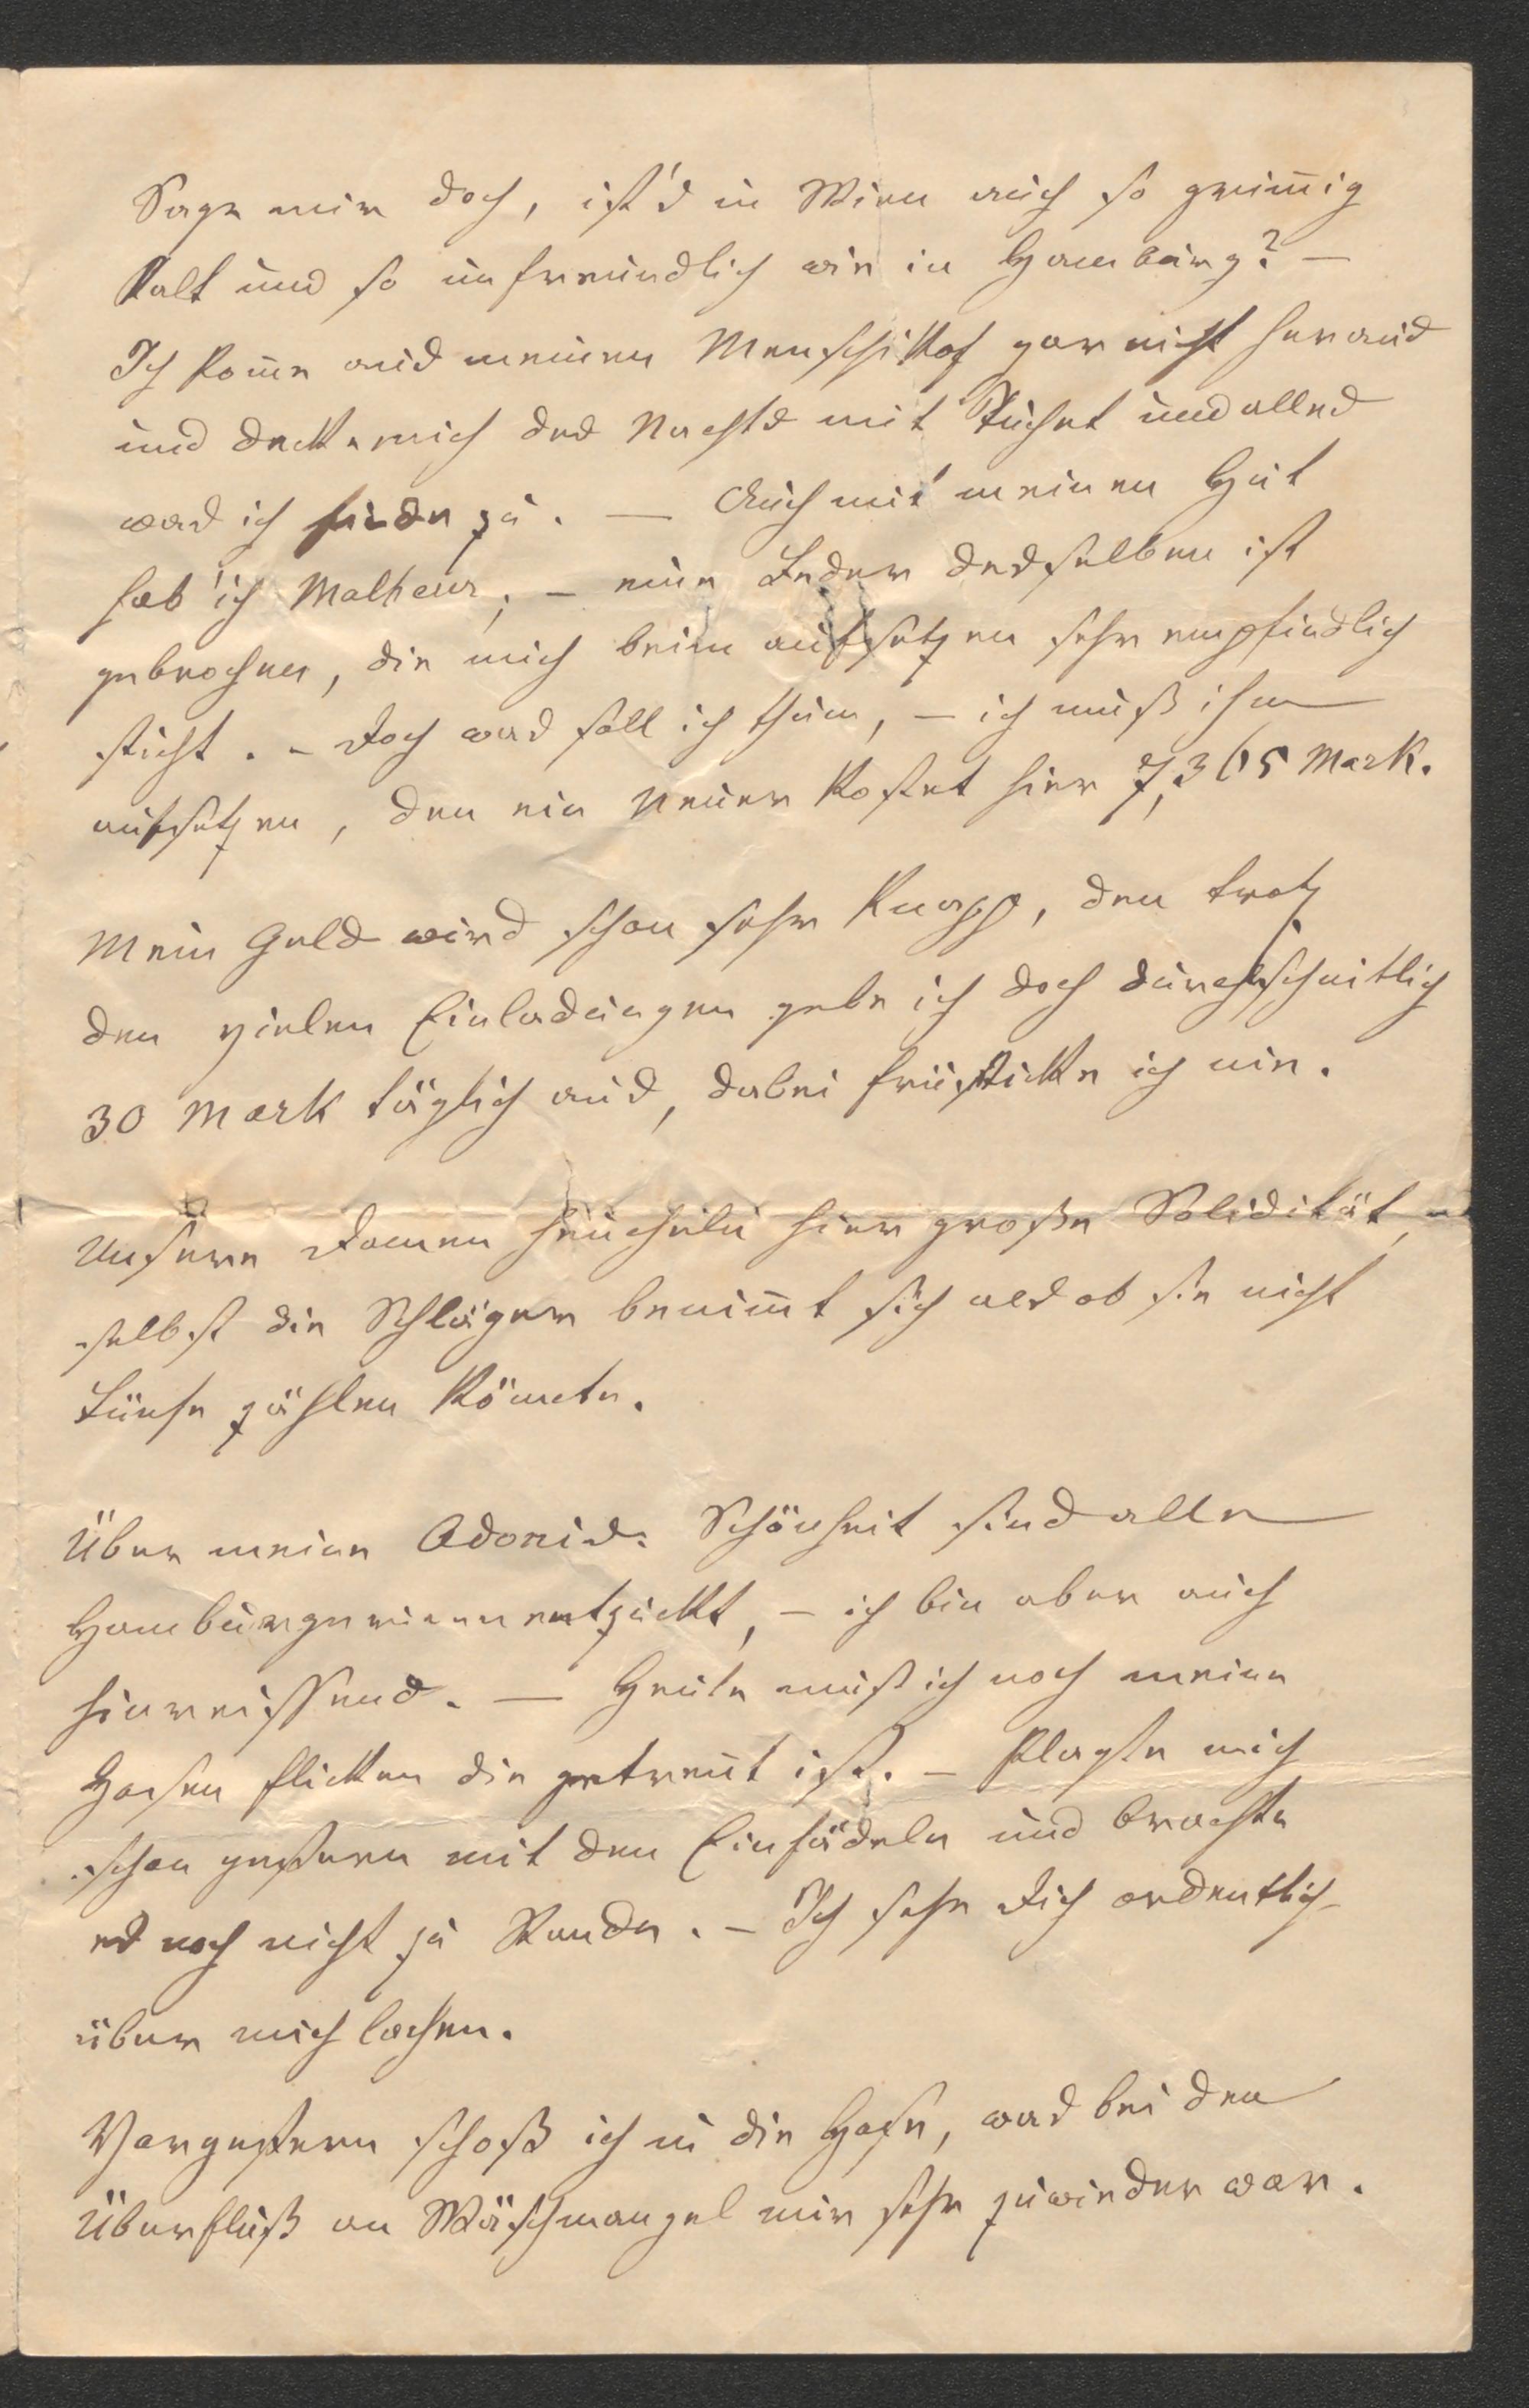 Sage mir doch, ist's in Wien auch so grim̅ig
kalt und so unfreundlich wie in Hamburg? –
Ich kom̅e aus meinen Menschikof gar nicht heraus
und decke mich des Nachts mit Tüchet und alles
was ich finde zu. — Auch mit meinen Hut
hab' ich Malheur; – eine Feder desselben ist
gebrochen, die mich beim aufsetzen sehr empfindlich
sticht. – Doch was soll ich thun, – ich muß ihn
aufsetzen, den ein Neuer kostet hier Mark.
Mein Geld wird schon sehr knapp, den trotz
den vielen Einladungen gebe ich doch durchschnitlich
30 Mark täglich aus, dabei früstücke ich nie.
Unsere Damen heucheln hier große Solidität, –
selbst die Schläger benim̅t sich als ob sie nicht
Fünfe zählen könnte.
Über meine Adonis: Schönheit sind alle
Hamburgerinnen entzückt, – ich bin aber auch
hinreissend. — Heute muß ich noch meine
Hosen flicken die getrent ist. – Plagte mich
schon gestern mit den Einfädeln und brachte
es noch nicht zu Stande. – Ich sehe Dich ordentlich
über mich lachen.
Vorgestern schoß ich in die Hose, was bei den
Überfluß an Wäschmangel mir sehr zuwieder war.